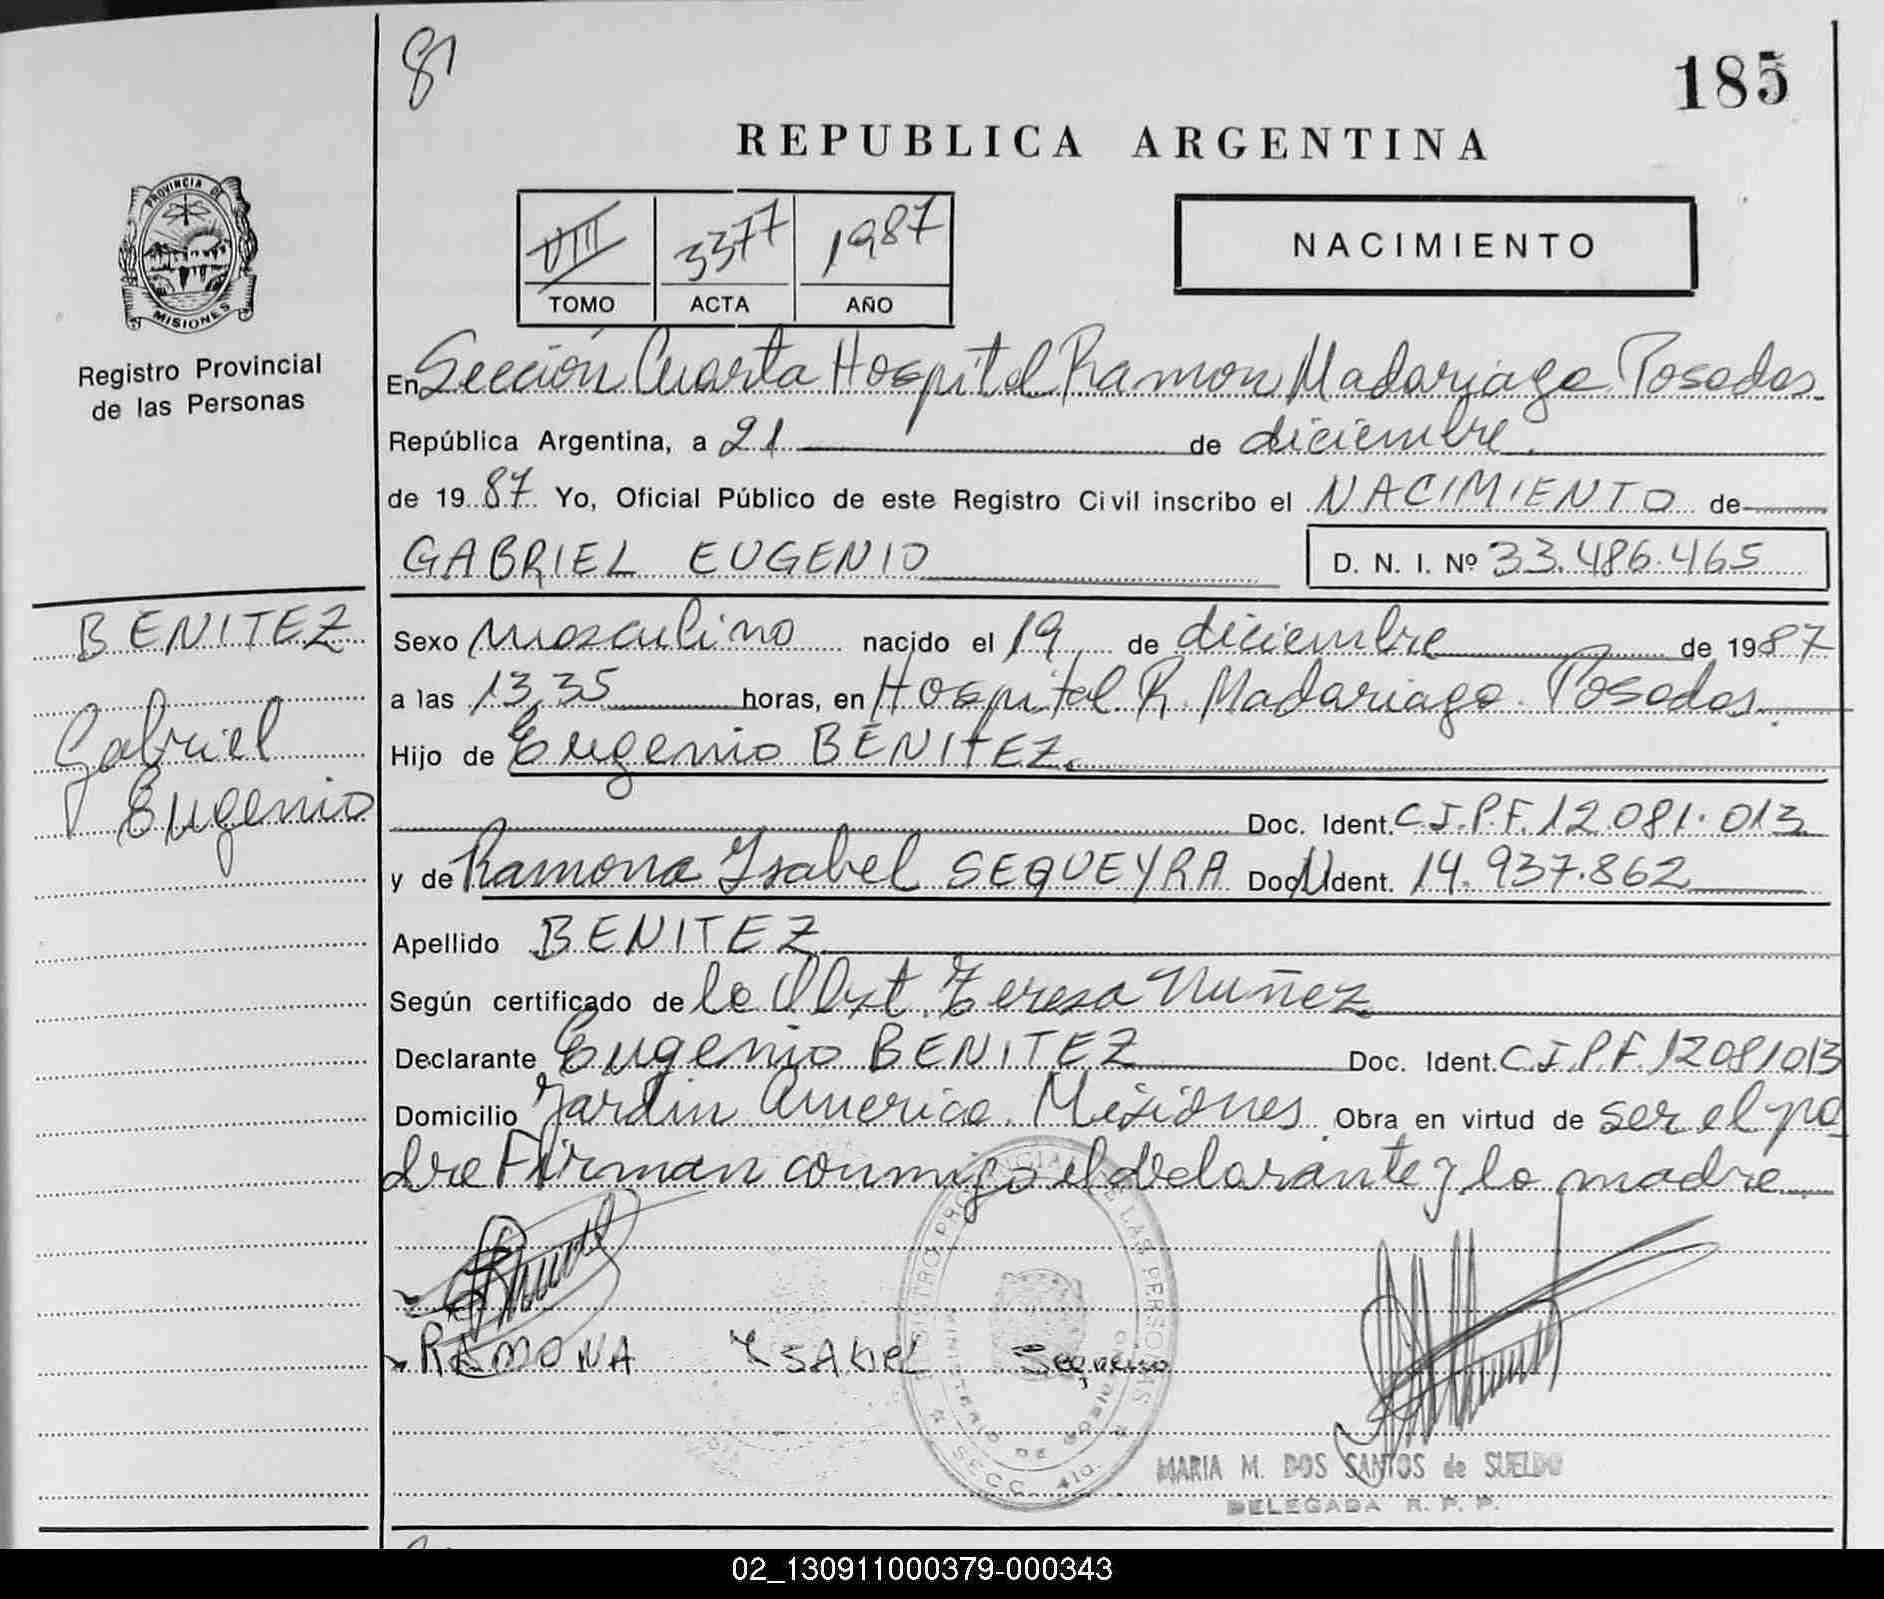 81
185
REPUBLICA ARGENTINA
PROVINCIA DE
MISIONES
Registro Provincial
de las Personas
VIII 3377 1987
TOMO ACTA AÑO
NACIMIENTO
En Sección Cuarta Hospital Ramon Madariaga Posadas
República Argentina, a 21 de diciembre
de 1987 Yo, Oficial Público de este Registro Civil inscribo el NACIMIENTO de
GABRIEL EUGENIO D. N. I. Nº 33.486.465
BENITEZ
Gabriel
Eugenio
Sexo masculino nacido el 19 de diciembre de 1987
a las 13,35 horas, en Hospital R. Madariaga Posadas
Hijo de Eugenio BENITEZ
Doc. Ident. C.I.P.F. 12.081.013
y de Ramona Ysabel SEQUEYRA Doc. Ident. 14.937.862
Apellido BENITEZ
Según certificado de la Obst. Teresa Nuñez
Declarante Eugenio BENITEZ Doc. Ident. C.I.P.F. 12081013
Domicilio Jardin America. Misiones Obra en virtud de ser el pa
dre Firman conmigo el declarante y la madre
RAMONA YSABEL
REGISTRO PROVINCIAL DE LAS PERSONAS
MINISTERIO DE GOBIERNO
SECC. 4ta.
MARIA M. DOS SANTOS de SUELDO
DELEGADA R. P. P.
02_130911000379-000343